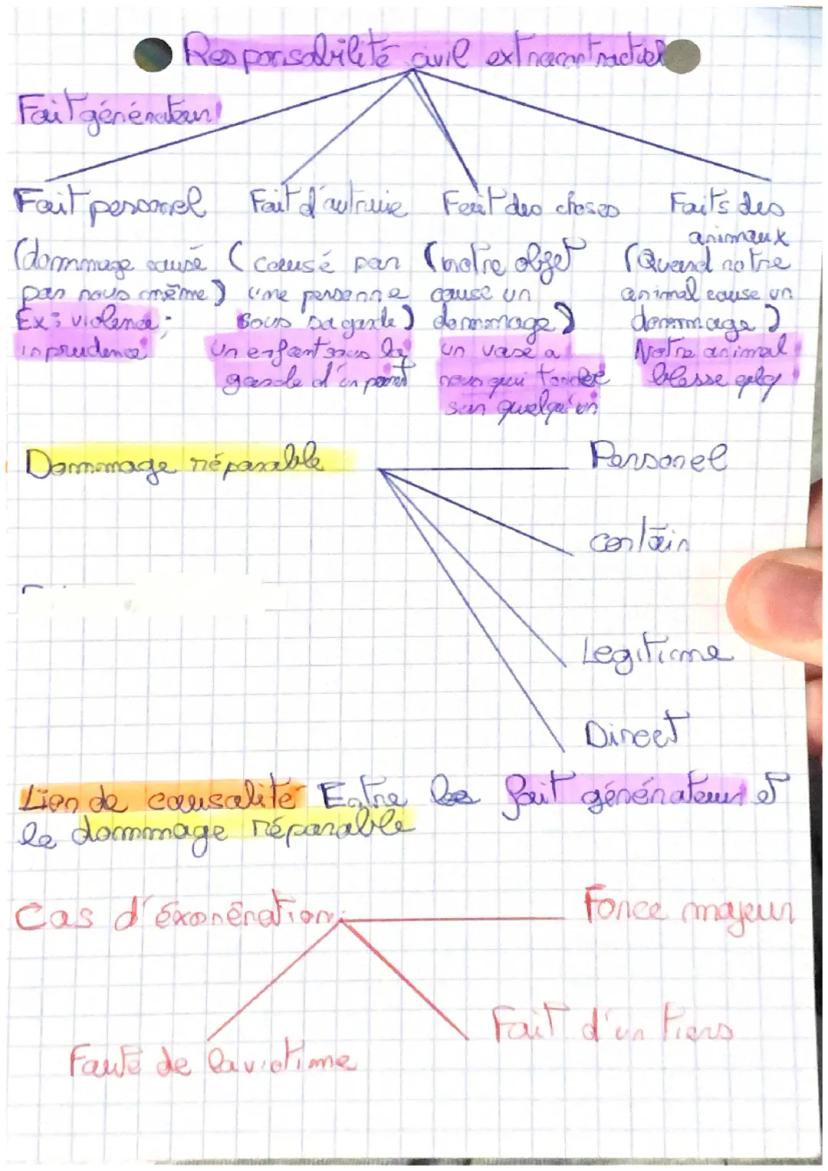 Responsabilité civil extracontractuel
Fait générateur
Fait personel
(dommage causé
par nous même)
Ex: violence;
inprudence
Fait d'autruie
(causé par
une personne
sous sa garde)
un enfant sous la
garde d'un parent
Fait des choses
(notre objet
cause un
dommage)
un vase a
nous qui tombe
sur quelqu'un
Faits des
animaux
(Quand notre
animal cause un
dommage)
Notre animal
blesse qelq
Dommage réparable
Personel
certain
Legitime
Direct
Lien de causalité Entre le fait générateur et
le dommage réparable
Cas d'éxonération:
Force majeur
Fait d'un tiers
Faute de la victime